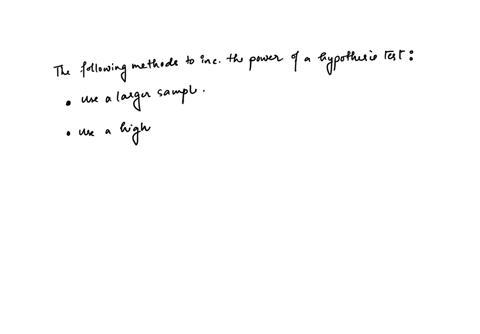 The following methods to inc. the power of a hypothesis Test:
• use a larger sampl.
• use a high